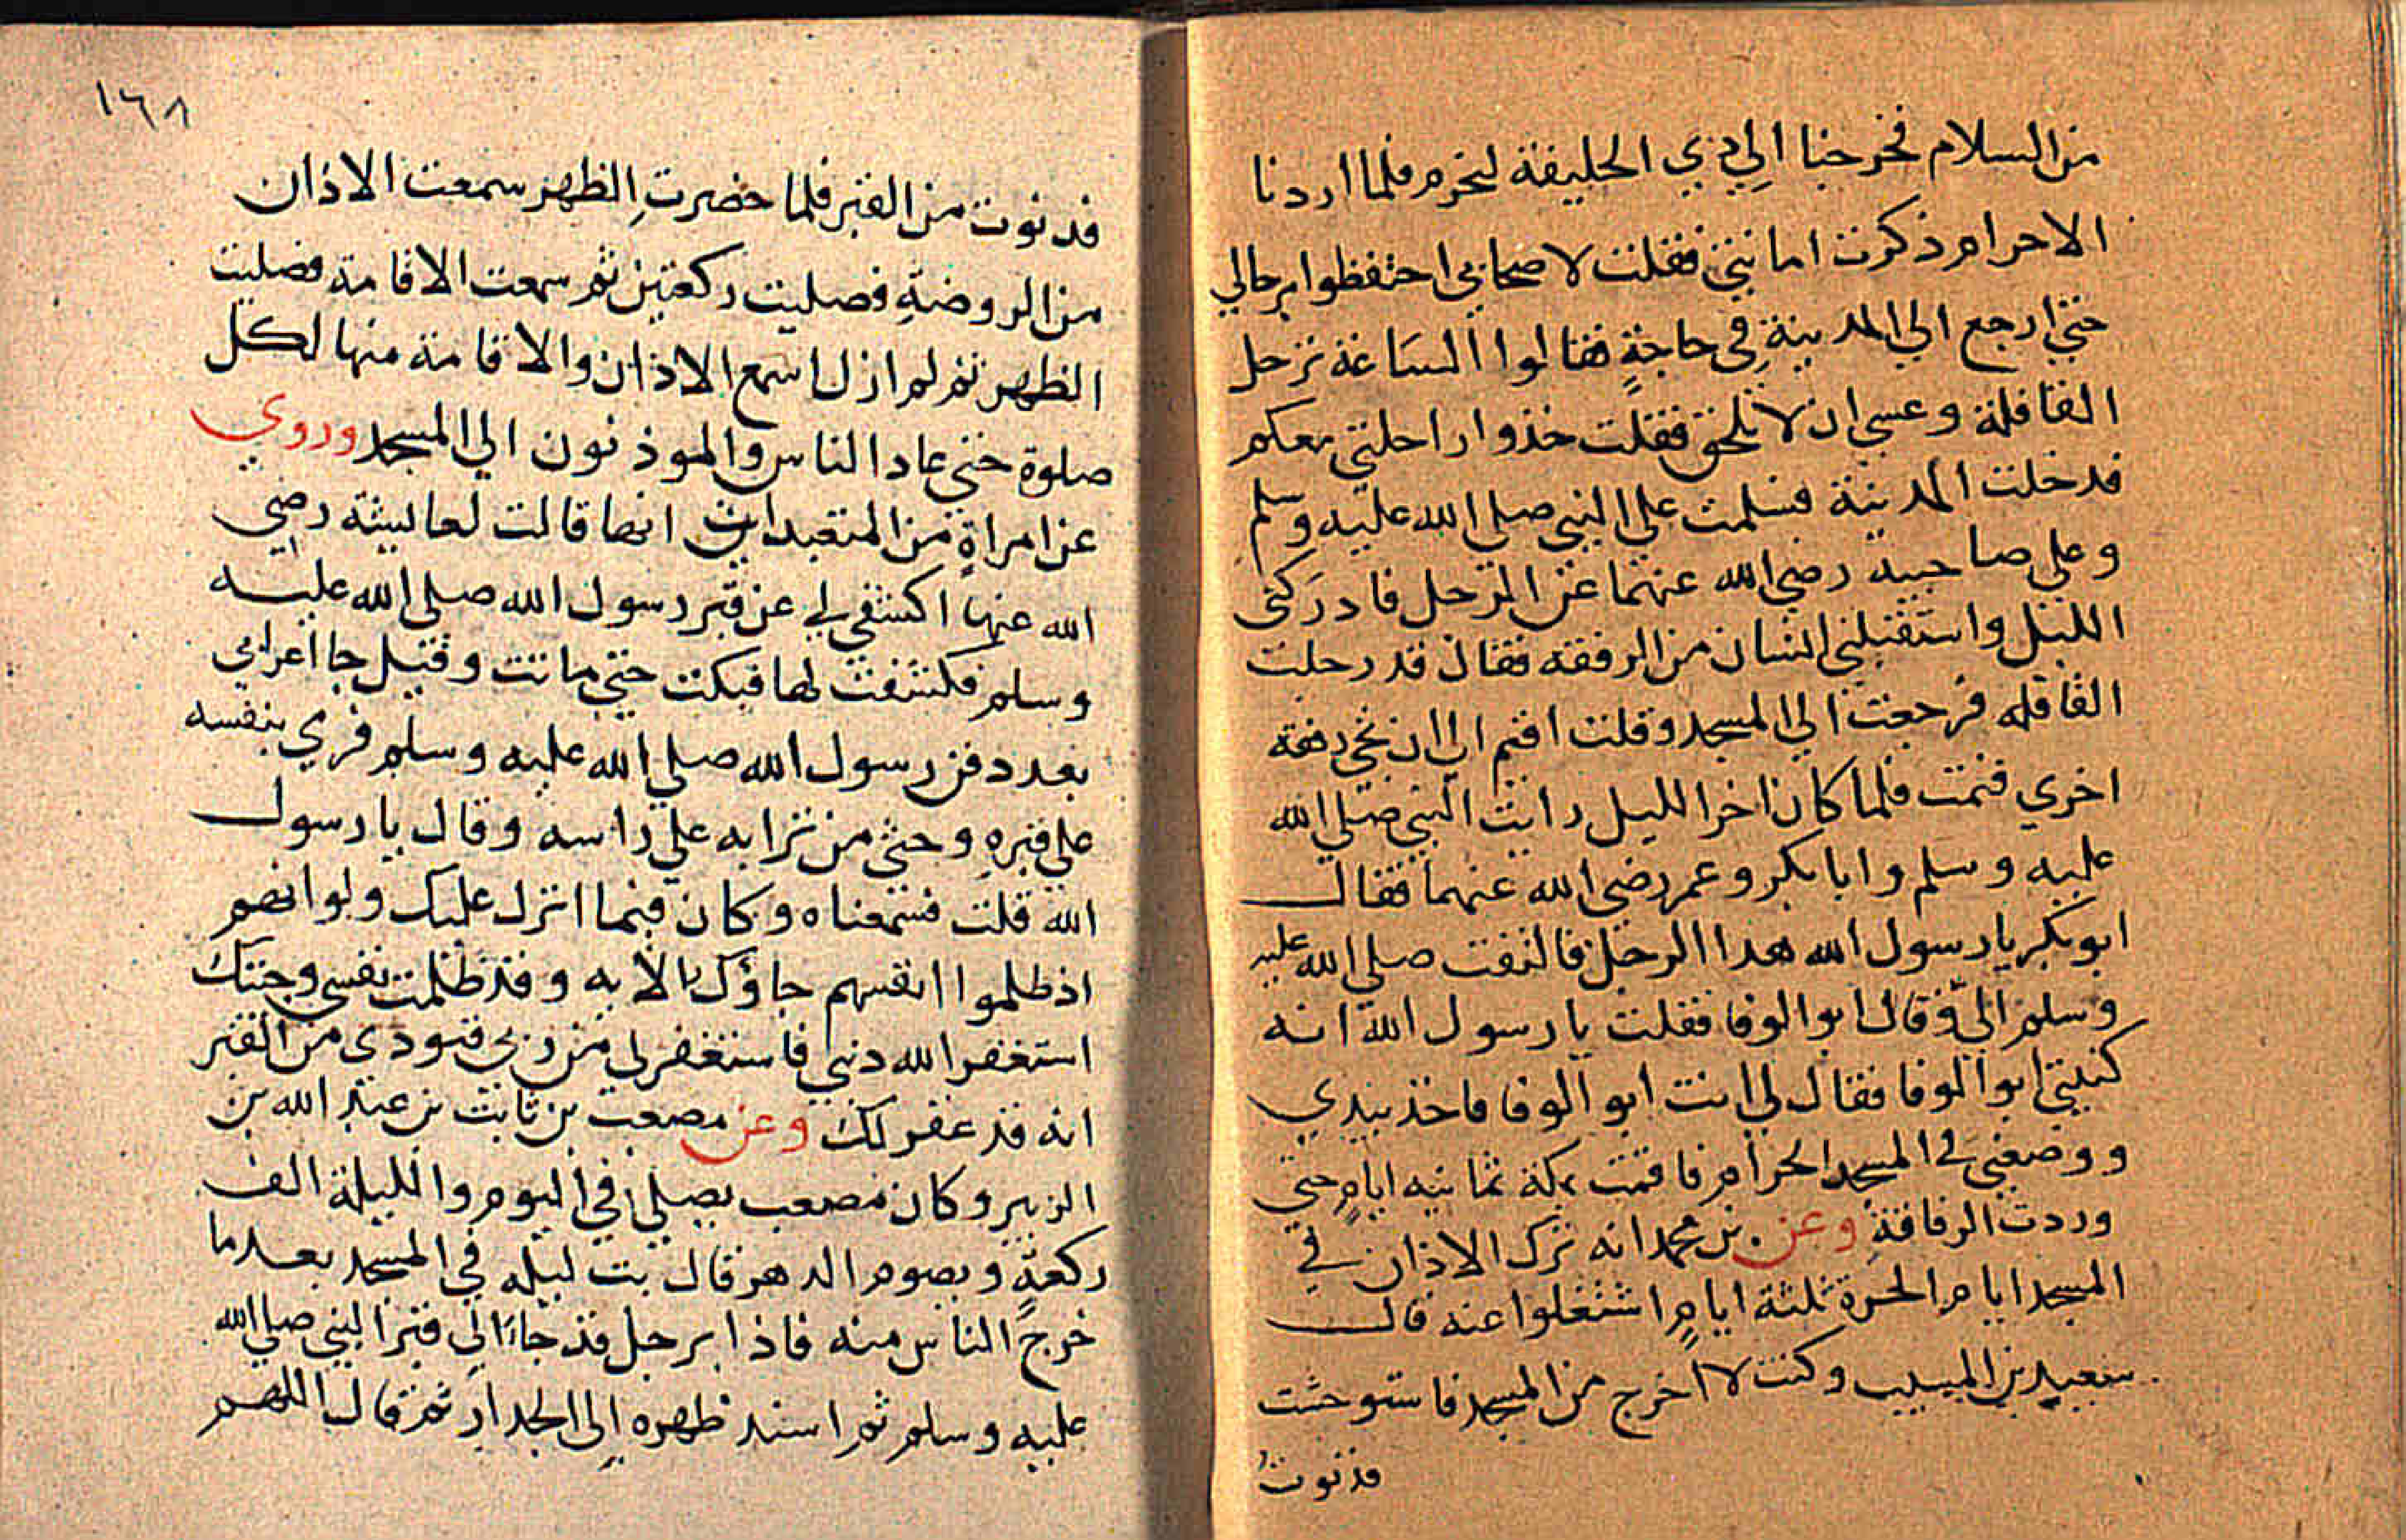 من السلام فخرجنا الي ذي الحليفة لنحرم فلما اردنا
الاحرام ذكرت امانتي فقلت لاصحابي احتفظوا برحالي
حتي ارجع الي المدينة في حاجة فقالوا الساعة ترحل
القافلة وعسي ان لا تلحق فقلت خذوا راحلتي معكم
فدخلت المدينة فسلمت علي النبي صلي الله عليه وسلم
وعلي صاحبيه رضي الله عنهما عن الرجل فادركني
الليل واستقبلني انسان من الرفقه فقال قد رحلت
القافله فرجعت الي المسجد وقلت اقيم الي ان تخرج رفقة
اخري فنمت فلما كان اخر الليل رايت النبي صلي الله
عليه وسلم وابا بكر وعمر رضي الله عنهما فقال
ابو بكر يا رسول الله هدا الرجل فالتفت صلي الله عليه
وسلم الي وقال ابو الوفا فقلت يا رسول الله انه
كنيتي ابو الوفا فقال لي انت ابو الوفا فاخذ بيدي
ووضعني في المسجد الحرام فاقمت بمكة ثمانيه ايام حتي
وردت الرفاقة وعن بن محمد انه ترك الاذان في
المسجد ايام الحرة ثلثة ايام اشتغلوا عنه قال
سعيد بن المسيب وكنت لا اخرج من المسجد فاستوحشت
فدنوت
١٦٨
فدنوت من القبر فلما حضرت الظهر سمعت الاذان
من الروضة فصليت ركعتين ثم سمعت الاقامة فصليت
الظهر ثم لم ازل اسمع الاذان والاقامة منها لكل
صلوة حتي عاد الناس والموذنون الي المسجد وروي
عن امراة من المتعبدات انها قالت لعايشة رضي
الله عنها اكشفي لي عن قبر رسول الله صلي الله عليه
وسلم فكشفت لها فبكت حتي ماتت وقيل جا اعرابي
بعد دفن رسول الله صلي الله عليه وسلم فرمي بنفسه
علي قبره وحثي من ترابه علي راسه وقال يا رسول
الله قلت فسمعناه وكان فيما انزل عليك ولو انهم
اذ ظلموا انفسهم جاؤك الايه وقد ظلمت نفسي وجئتك
استغفر الله دنبي فاستغفر لي من ربي فنودي من القبر
انه قد غفر لك وعن مصعب بن ثابت بن عبد الله بن
الزبير وكان مصعب يصلي في اليوم والليلة الف
ركعة ويصوم الدهر قال بت ليله في المسجد بعد ما
خرج الناس منه فاذا برجل قد جاء الي قبر النبي صلي الله
عليه وسلم ثم اسند ظهره الي الجدار ثم قال اللهم